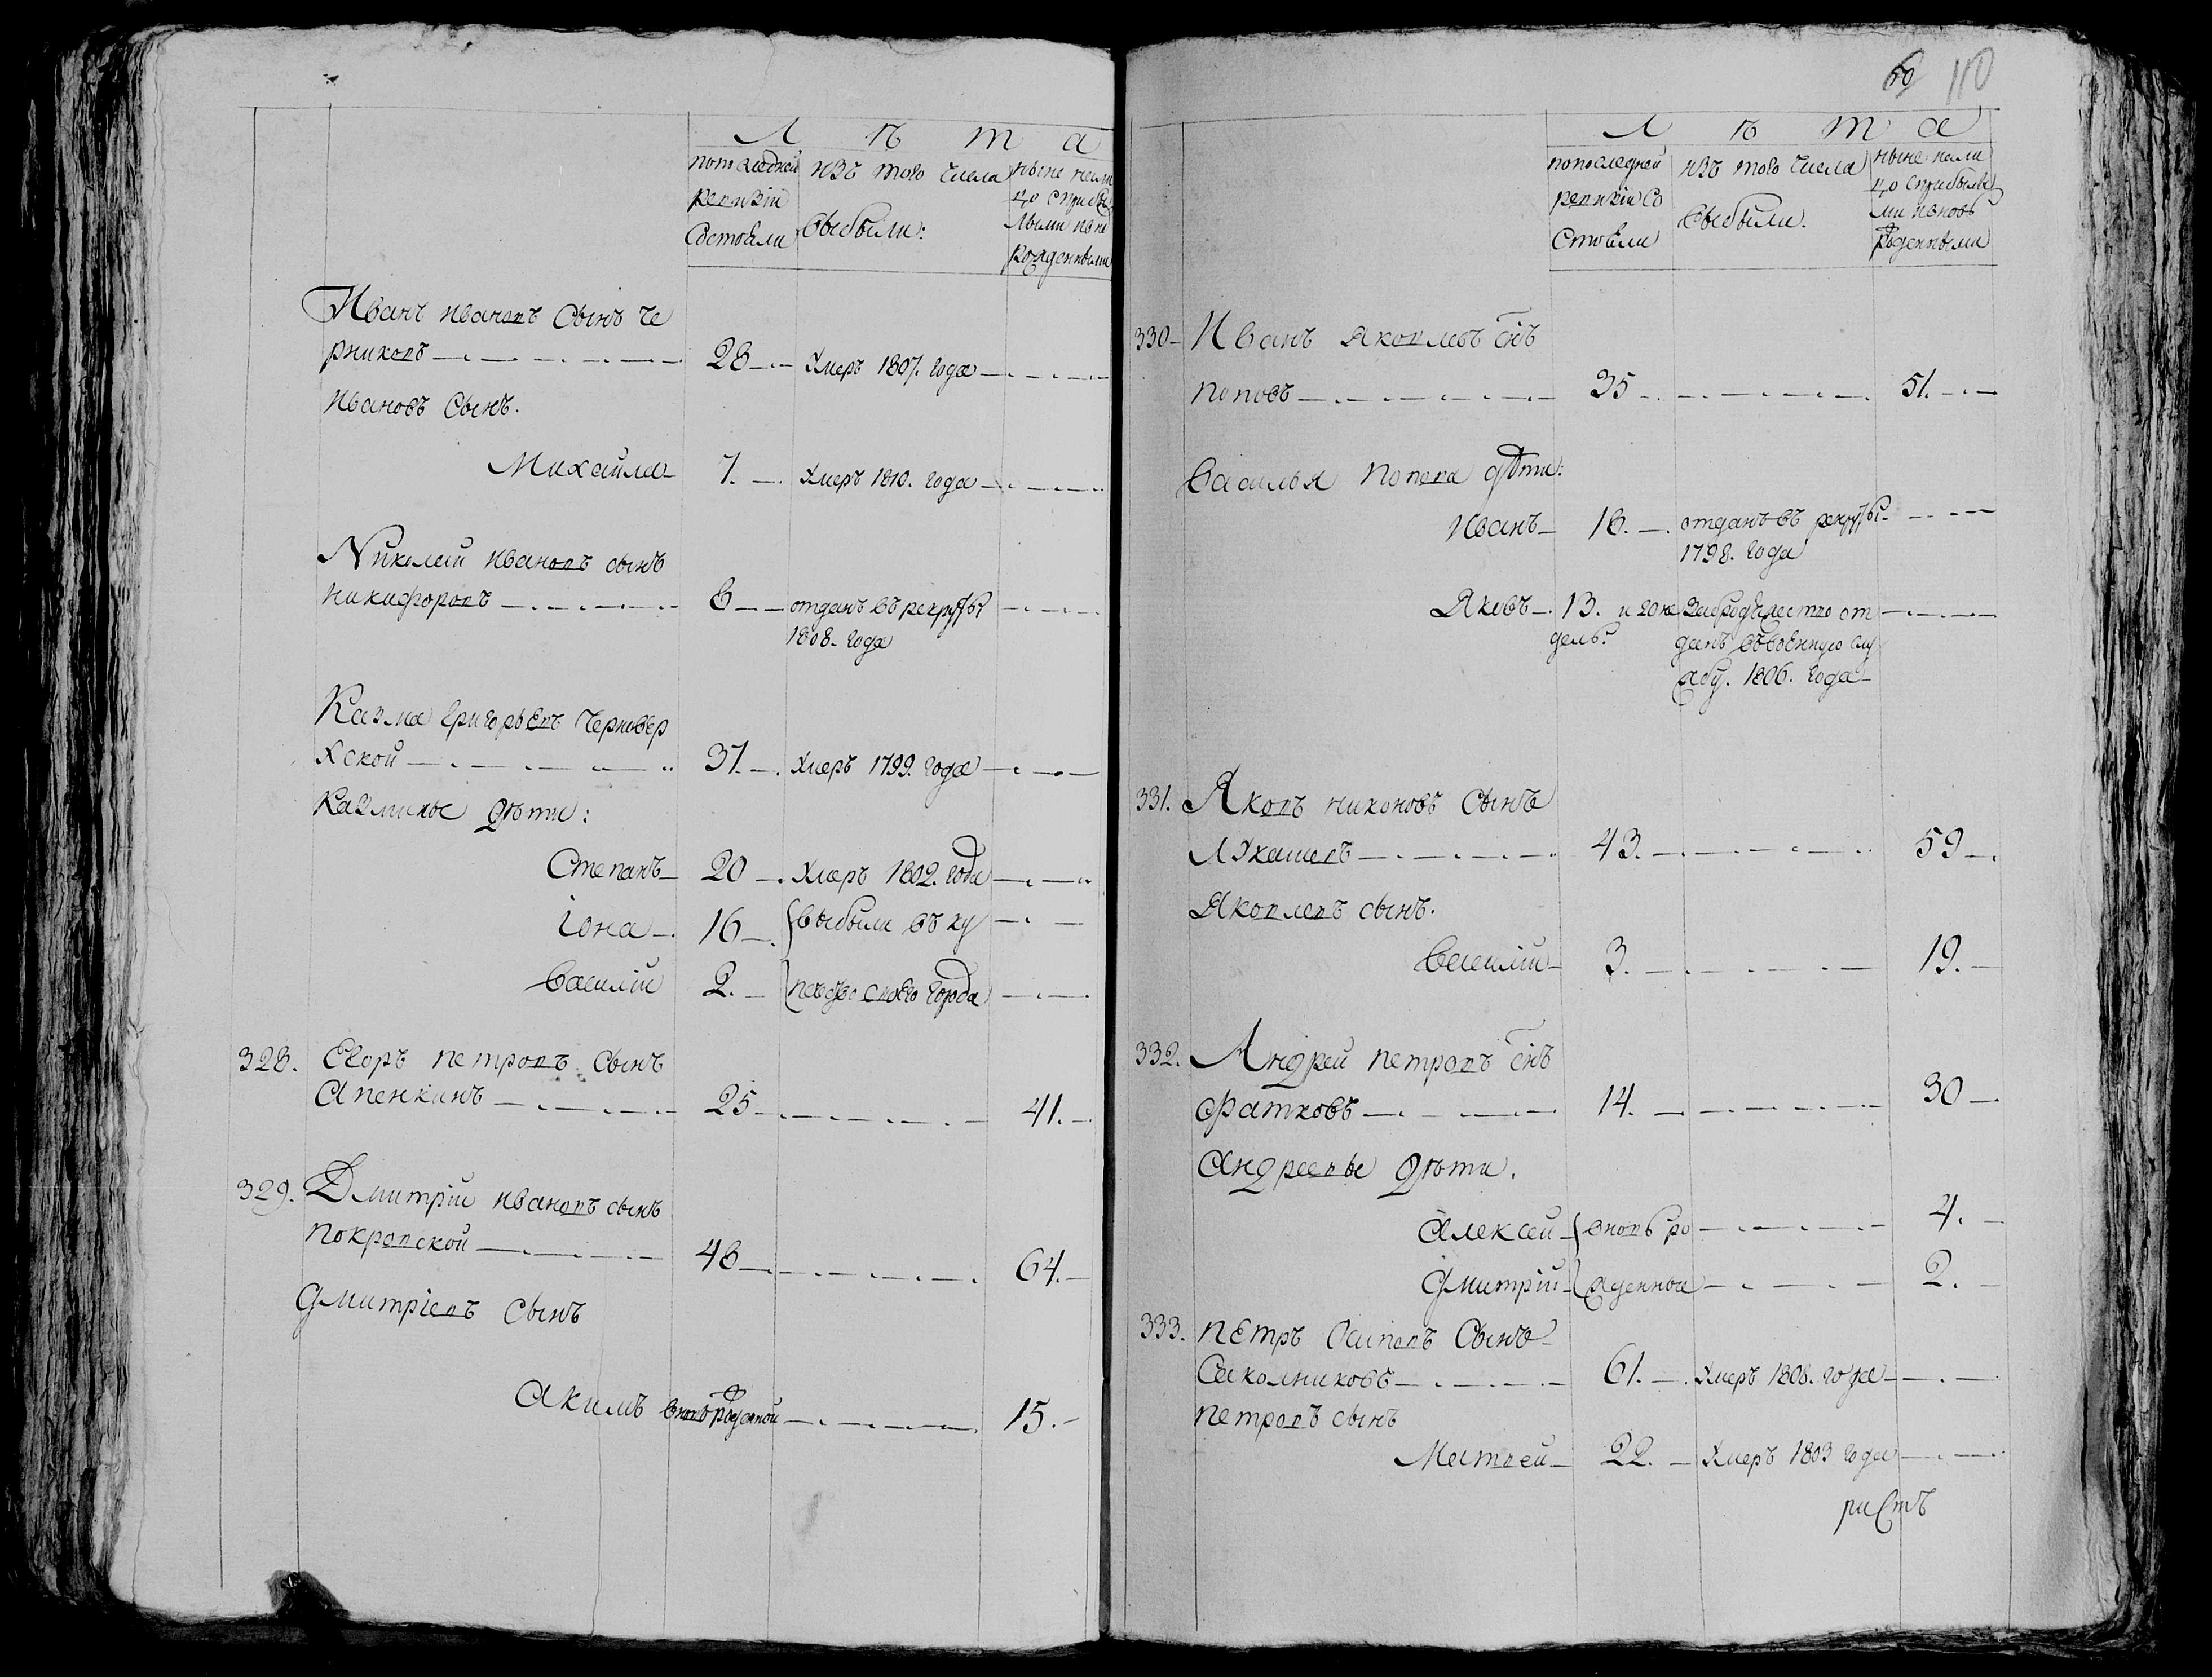 Л ѣ т а
попоследней изъ того числа ныне нали
ревизіи выбыли: цо сприбы
состояли лыми ивно
рожденными
Иванъ ивановъ сынъ че
рниковъ 28 умеръ 1807. года
ивановъ сынъ.
Михайла 7. умеръ 1810. года
Николай ивановъ сынъ
никифоровъ 8 отданъ въ рекруты
1808. года
Казма григорьевъ черновер
хской 37. умеръ 1799. года
казмины дѣти:
Степанъ 20 умеръ 1802. года
Іона 16 выбыли въ ку
василій 2. печество сего города
328. Егоръ петровъ сынъ
апенкинъ 25 41.
329. Дмитрій ивановъ сынъ
покровской 48 64.
дмитріевъ сынъ
акимъ вновьрожденной 15.
60 110
Л ѣ т а
попоследней изъ того числа ныне нали
ревизіи со выбыли. цо сприбылы
стояли ми ивновь
рожденными
330 Иванъ яковлевъ снъ
поповъ 35 51.
василья попова дѣти:
иванъ 18. отданъ въ рекруты
1798. года
яковъ 13. от
данъ въ военную слу
жбу. 1806. года
331. Яковъ никоновъ сынъ
лукашевъ 43. 59
яковлевъ сынъ.
василий 3. 19.
332. Андрей петровъ снъ
фатховъ 14. 30
андреевы дѣти.
алексей вновь ро 4.
дмитрій жденной 2.
333. петръ осиповъ сынъ
сыколниковъ 61. умеръ 1808. года
петровъ сынъ
Матвей 22. умеръ 1803 года
ристъ